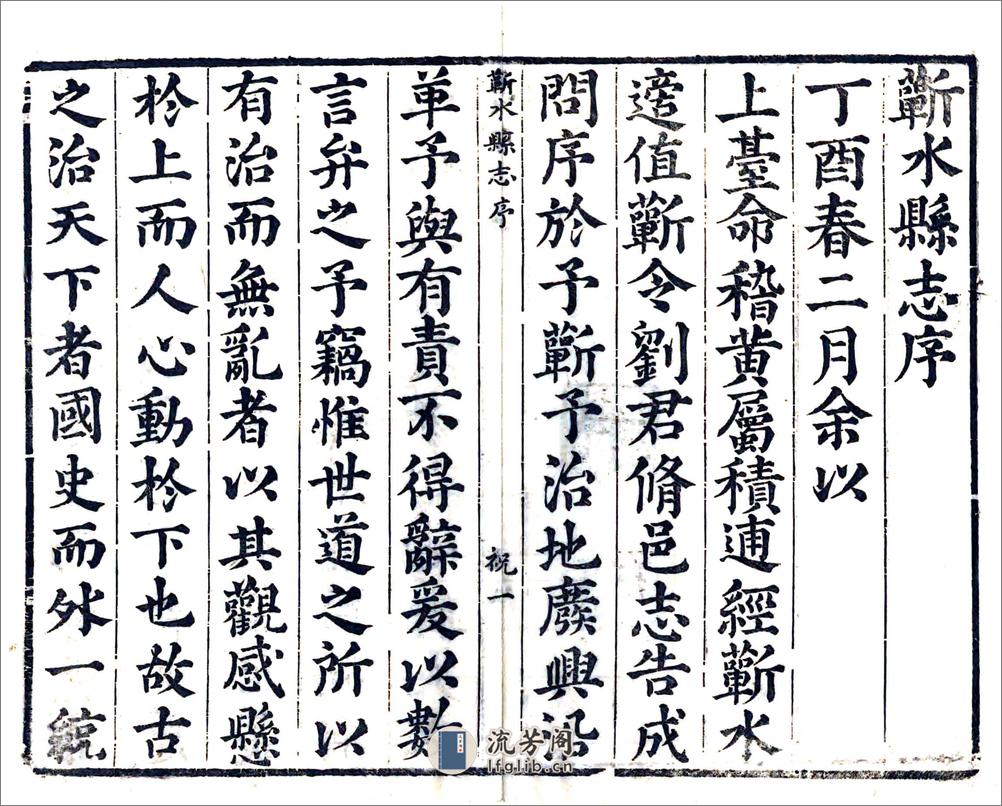 蘄水縣志序
丁酉春二月余以
上臺命稽黄屬積逋經蘄水
適值蘄令劉君脩邑志告成
問序於予蘄予治地廢興沿
革予與有責不得辭爰以數
言弁之予竊惟世道之所以
有治而無亂者以其觀感懸
於上而人心動於下也故古
之治天下者國史而外一統
蘄水縣志序
祝一
流芳阁
lfglib.cn